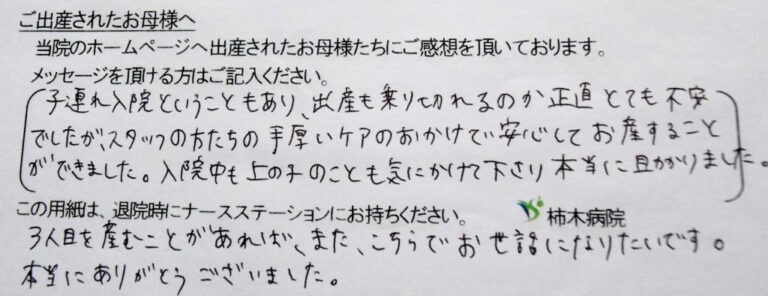 ご出産されたお母様へ
当院のホームページへ出産されたお母様たちにご感想を頂いております。
メッセージを頂ける方はご記入ください。
子連れ入院ということもあり、出産も乗り切れるのか正直とても不安
でしたが、スタッフの方たちの手厚いケアのおかげで安心してお産すること
ができました。入院中も上の子のことも気にかけて下さり本当に助かりました。
この用紙は、退院時にナースステーションにお持ちください。
柿木病院
3人目を産むことがあれば、また、こちらでお世話になりたいです。
本当にありがとうございました。